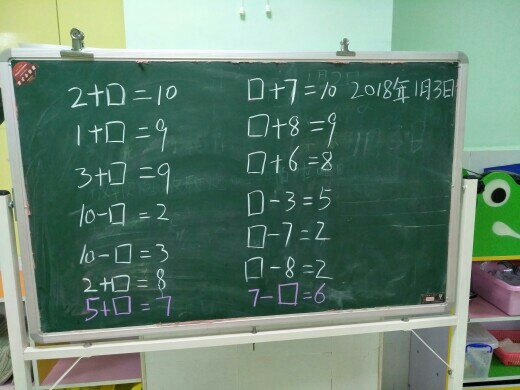 2+□=10
1+□=9
3+□=9
10-□=2
10-□=3
2+□=8
5+□=7
□+7=10 2018年1月3日
□+8=9
□+6=8
□-3=5
□-7=2
□-8=2
7-□=6